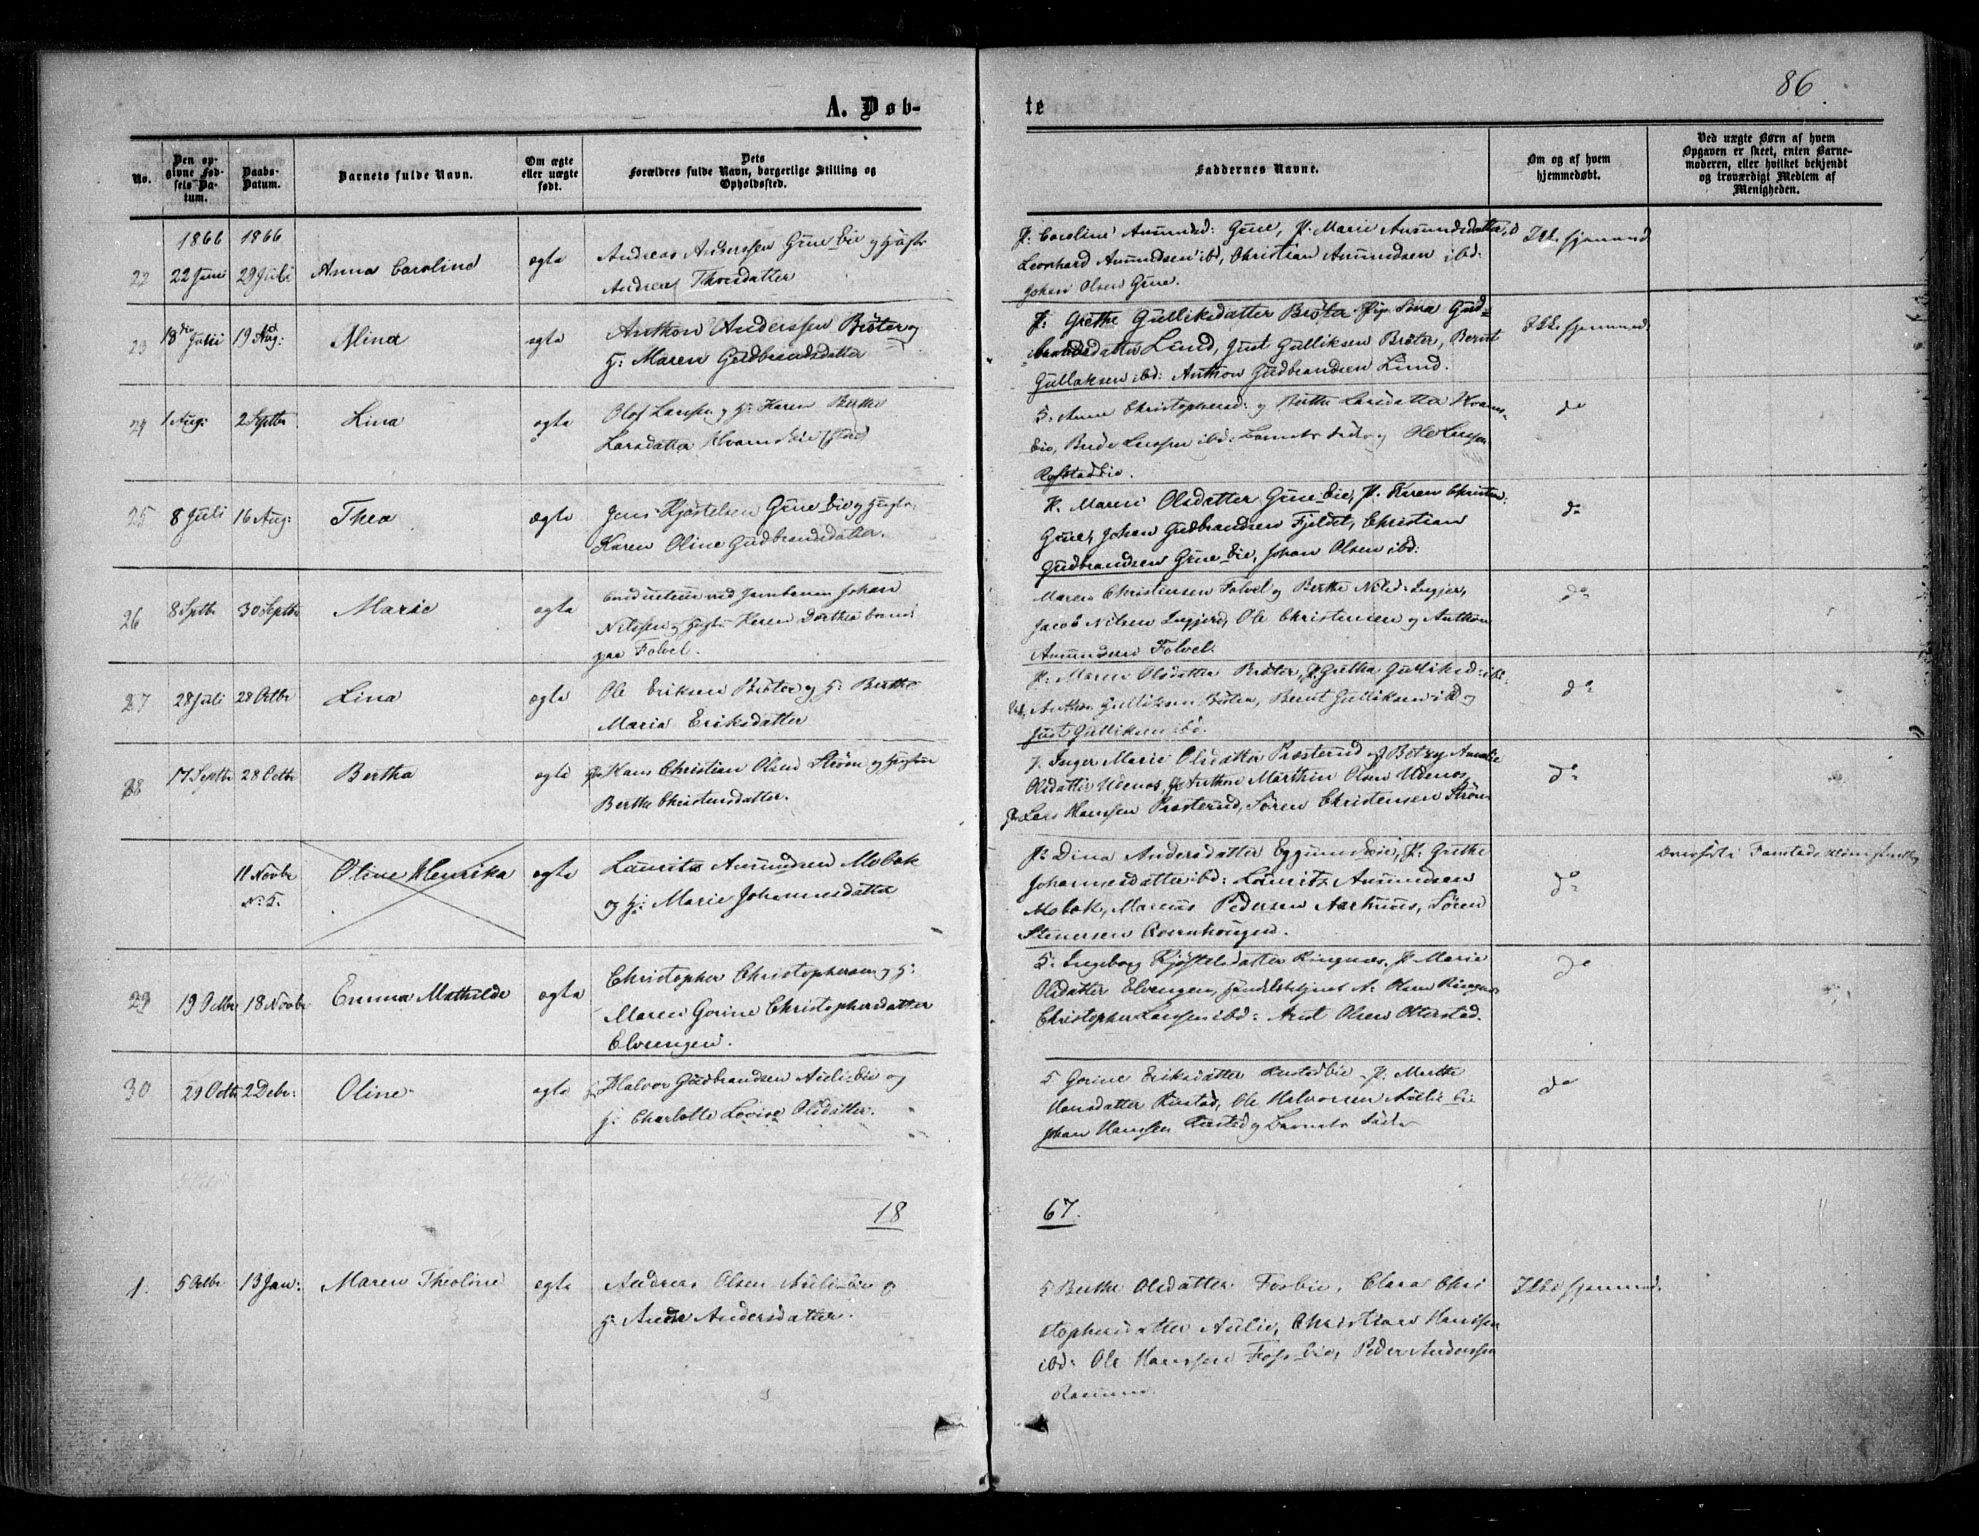 86.
A. Døb-
te
No.
Den op-
givne Fød-
sels Da-
tum.
Daabs-
Datum.
Barnets fulde Navn.
Om ægte
eller uægte
født.
Dets
Forældres fulde Navn, borgerlige Stilling og
Opholdssted.
Faddernes Navne.
Om og af hvem
hjemmedøbt.
Ved uægte Børn af hvem
Opgaven er skeet, enten Barne-
moderen, eller hvilket bekjendt
og troværdigt Medlem af
Menigheden.
1866 1866
22 22 Juni 29 Juli Anna Caroline ægte
Andreas Anderssen Grue Eie og Hustr
Andrea Thorsdatter
P: Caroline Amunsd: Grue, P. Marie Amundsdatter, ibd
Leonhard Amundsen ibd, Christian Amundsen ibd:
Johan Olsen Grue.
23 18de Julii 19 Aug: Alina ægte
Anthon Anderssen Brøter og
H: Maren Guldbrandsdatter
P: Grethe Gulliksdatter Brøter Lina Gud-
brandsdatter Lund, Just Gulliksen Brøter, Bernt
Gulliksen ibd: Anthon Gudbrandsen Lund.
24 1 Aug: 2 Septbr Lina ægte
Olof Larsen og H: Karen Berthe
Larsdatter
G. Anne Christophersd: og Berthe Larsdatter Kvams-
eie, Brede Larssen ibd: Barnets Fader og Ole Larssen
25 8 Juli 16 Aug: Thea ægte
Jens Kjøstelsen Grue Eie og Hustr.
Karen Oline Gudbrandsdatter.
K. Maren Olsdatter Grue Eie, P. Karen Christen:
Grue, Johan Gudbrandsen Fjeldet, Christian
Gudbrandsen Grue Eie, Johan Olsen ibd:
26 8 Septbr 30 Septbr Marie ægte
Conducteur ved Jernbanen Johan
Nilssen og Hustr: Karen Dorthea
paa Folvel.
Maren Christensen Folvel og Berthe Nilsd: Ingjer,
Jacob Nilsen Ingjerd, Ole Christensen og Anthon
Amundsen Folvel.
27 28 Juli 28 Octbr Lina ægte
Ole Eriksen Brøter og H: Berthe
Maria Eriksdatter
P: Maren Olsdatter Brøter, P. Grethe Gulliksd: ibd
Anthon Gulliksen Brøter, Bernt Gulliksen ibd og
Just Gulliksen ibd.
28 17 Septbr 28 Octbr Bertha ægte
Hans Christian Olsen Strøm og Hustru
Berthe Christensdatter.
Inger Marie Olsdatter Præsterud og P Betzy Amalie
Olsdatter Udenæs, Anthon Marthin Olsen Udenæs,
Lars Hanssen Præsterud, Søren Christensen Strøm
11 Novbr Oline Henrika ægte
No 5.
Laurits Amundsen Mobæk
og H: Marie Johannesdatter
P: Dina Andersdatter Eggumseie, P. Grethe
Johannesdatter ibd: Laurits Amundsen
Mobæk, Marius Pedersen Aarhuus, Søren
Stenersen Qvernhougen.
29 19 Octbr 18 Novbr Emma Mathilde ægte
Christopher Christophersen og H:
Maren Gorine Christophersdatter
Elvengen.
G: Ingeborg Kjøstelsdatter Ringnæs, P. Marie
Olsdatter Elvengen, Handelsbetjent A: Olsen Ringnæs
Christopher Larssen ibd: Arnt Olsen Otterstad.
30 29 Octbr 2 Debr: Oline ægte
Halvor Gudbrandsen Auli Eie og
H: Charlotte Lovise Olsdatter.
G Gorine Eriksdatter Rustadeie. P. Marthe
Hansdatter Rustad, Ole Halvorsen Auli Eie
Johan Hanssen Rustad og Barnets Fader
18 67.
1. 5 Octbr 13 Jan: Maren Theoline ægte
Andreas Olsen Auli Eie og
H: Anne Andersdatter.
G Berthe Olsdatter Foseie, Clara Chri
stophersdatter Aulie, Christian Hanssen
ibd: Ole Hanssen Foss Eie, Peder Anderssen